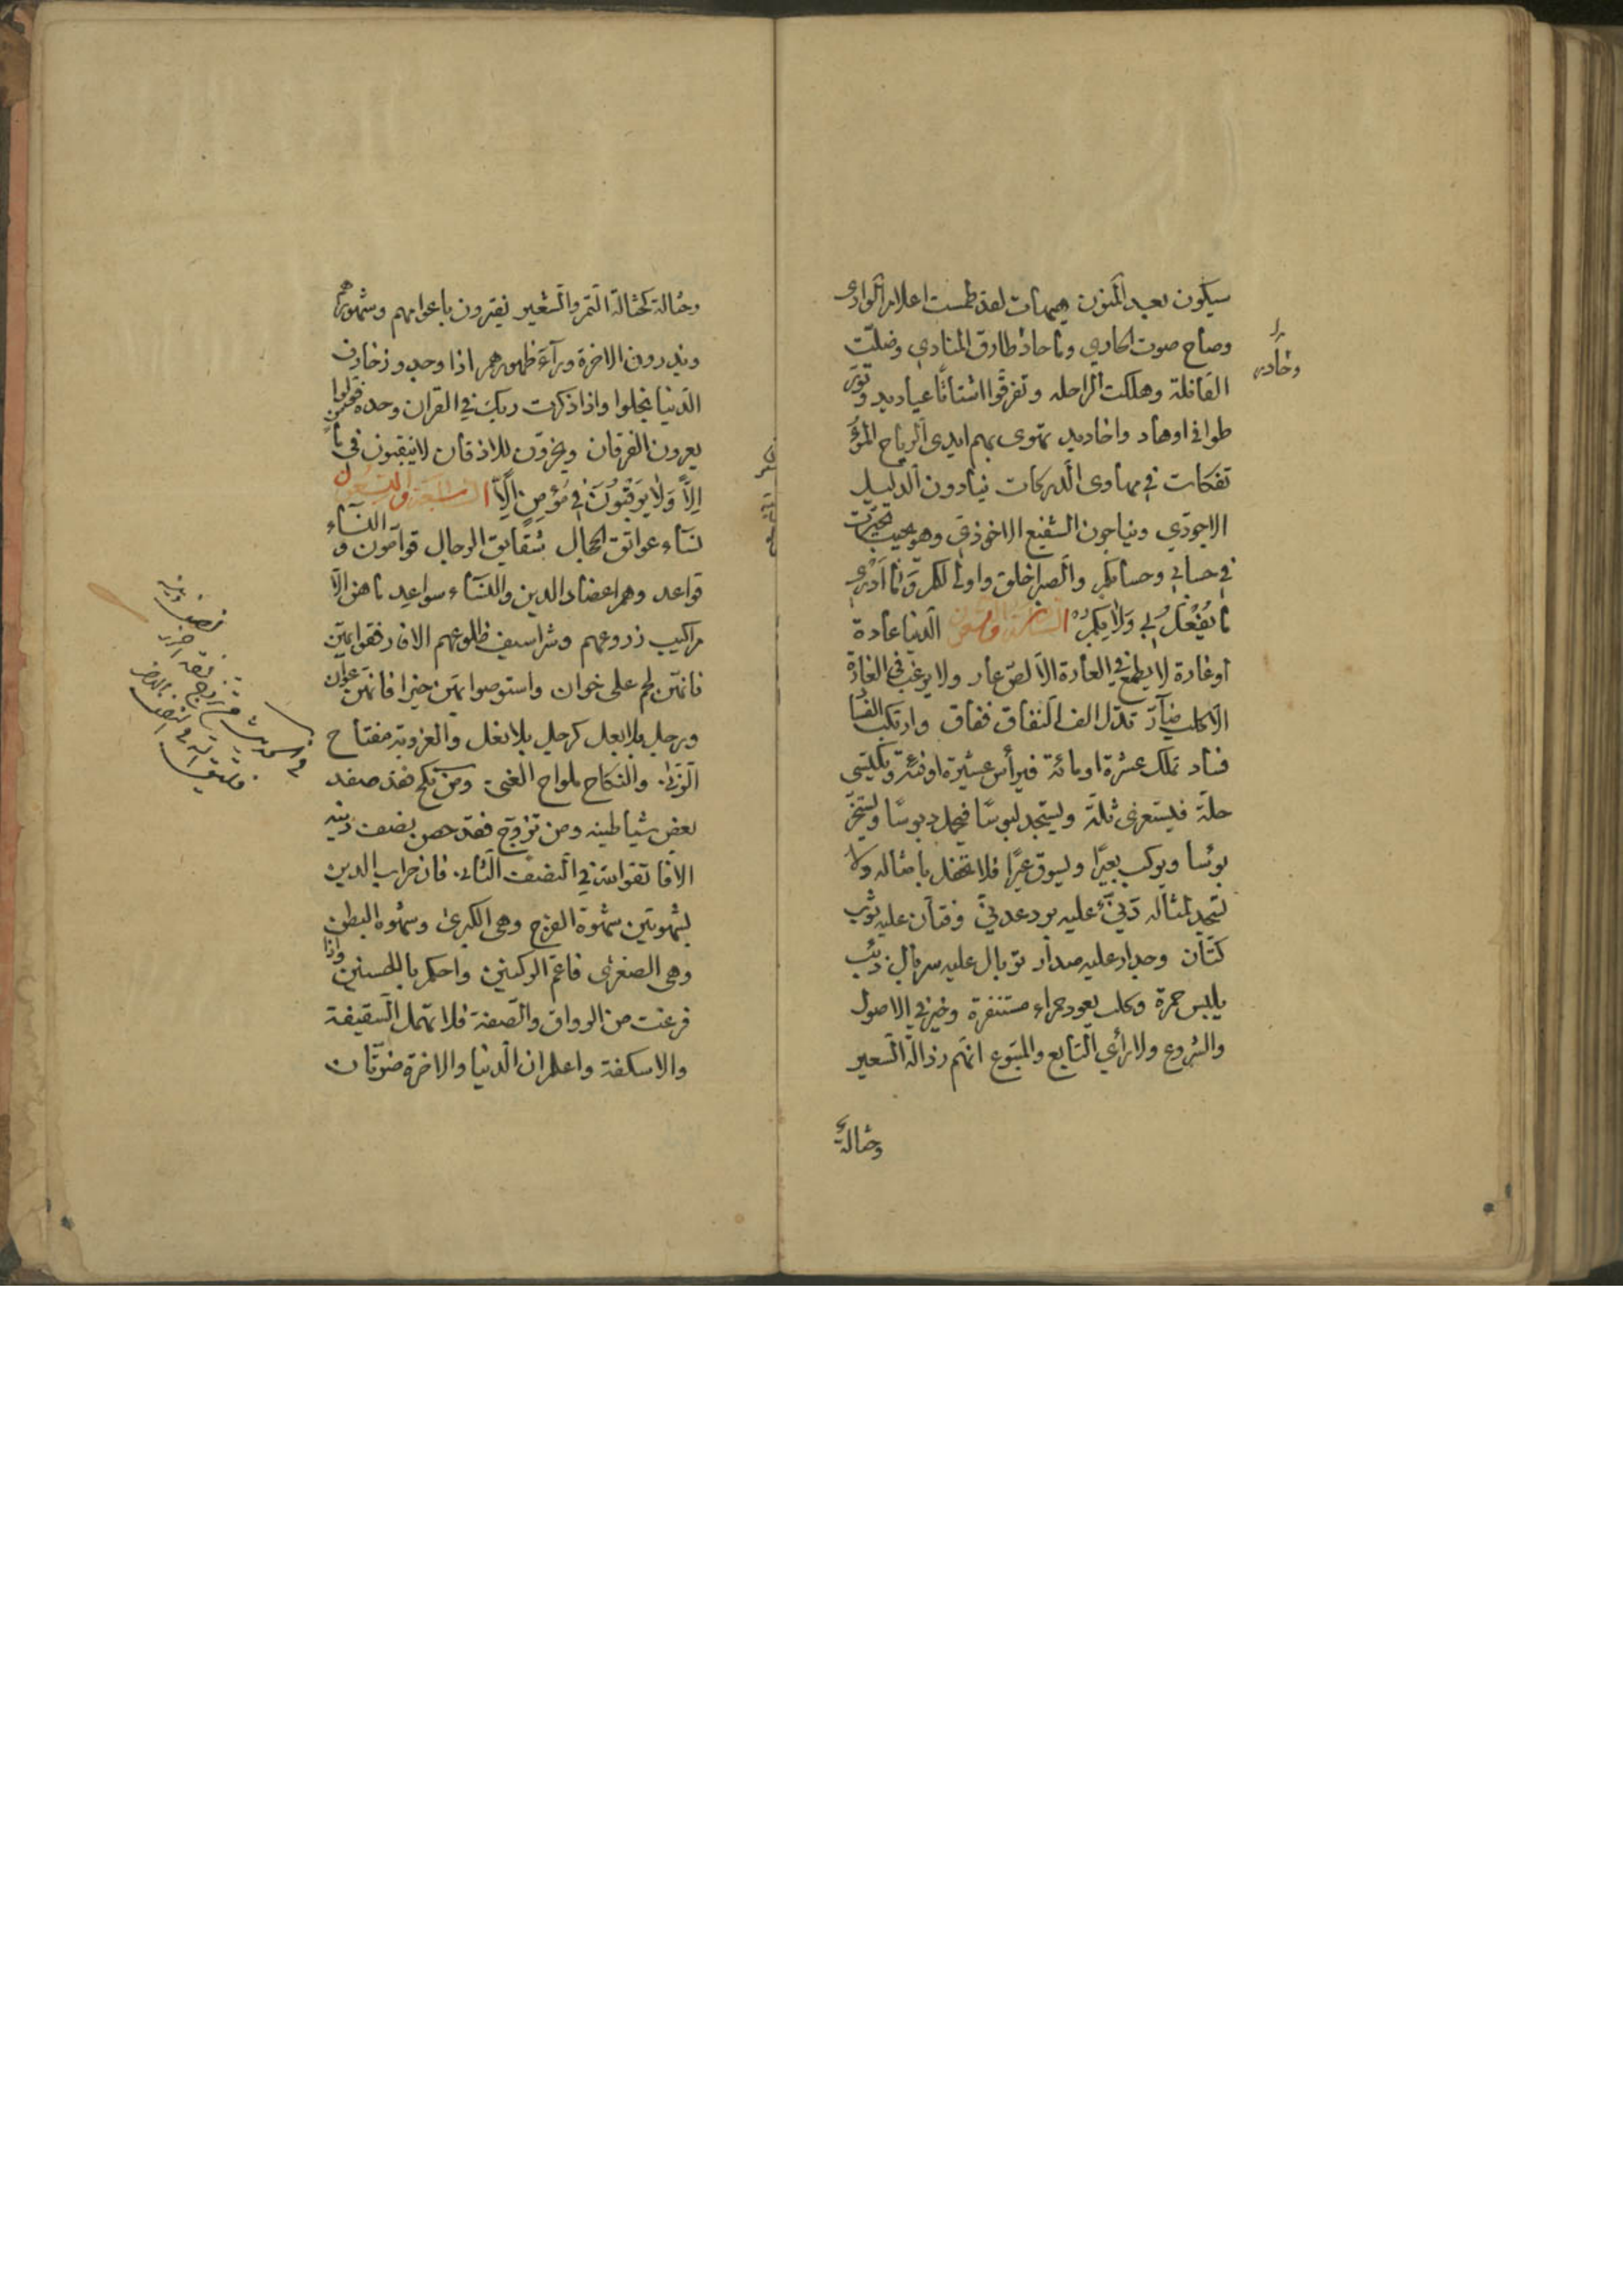 سيكون بعيد المنون هيهات لقد طمست اعلام الوادى
وصاح صوت الحادي وما حاد طارق المنادي وضلّت
القافلة وهلكت الراحله وتفرقوا اشتاتًا عباديد وتورّ
طوا فى اوهاد واخاديد تهوى بهم ايدى الرياح المؤ
تفكات في مهاوى الدركات ينادون الدليل
الاجودي ويناجون الشفيع الاخوذي وهو يجيب تحيّرت
في حسابي وحسابكم والصبر اخلق واولى لكم وَمَا اَدْرى
مَا يُفْعَلُ بي وَلا بِكُمْ الدنيا عادة
او غادة لا يطمع في العادة الا لصّ عار ولا يرغب فى الغادة
الا كلب ضارّ الف النفاق وارتكب الفسا
فساد تملك عشرة او مائة فيرأس عشيرة او فئة ويكتسى
حلّة فيستعرى ثلّة ويستجد لبوسًا فيحمل دبوسًا
بوئسا ويركب بعيرًا ويسوق عيرًا فلا تحفل بامثاله ولا
دنيّ عليه برد عدنيّ وفتان عليه ثوب
كتّان وحداد عليه صدار عليه سربال ذئب
يلبس حمرة وكلب يعود حمراء مستنفرة في الاصول
والفروع ولا رأي التابع والمتبوع انهم رذالة السعير
وحثالة
وحادى
وحثالة كحثالة التمر والشعير يغترون باعوامهم وشهورهم
ويذرون الاخرة ورآءَ ظهورهم اذا وجدوا زخارف
الدنيا بخلوا واذا ذكرت ربك في القران وحده
يعرون الفرقان ويخرّون للاذقان لا يرقبون فى
اِلّاً وَلا يَرْقُبُونَ في مُؤمِنٍ اِلّاً والتسعون النسآء
نسآء عواتق الحجال شقايق الرجال قوامون و
قواعد وهم اعضاد الدين والنسآء سواعد ما هن الا
مراكيب زروعهم وشراسيف ضلوعهم الا فارفقوا بهنّ
فانهنّ لحم على خوان واستوصوا بهنّ خيرا فانهنّ عوان
ورجل بلا بعل كرجل بلا نعل والعزوبة مفتاح
الزنى والنكاح ملواح الغنى ومن نكح فقد صفد
بعض شياطينه ومن تزوج فقد حصن نصف دينه
الا فاتقوا الله في النصف الثانى فان خراب الدين
بشهوتين شهوة الفرج وهى الكبرى وشهوه البطن
وهى الصغرى الركنين واحكم واذا
فرغت من الرواق والصفة فلا تهمل السقيفة
والاسكفة واعلم ان الدنيا والاخرة ضرّتان